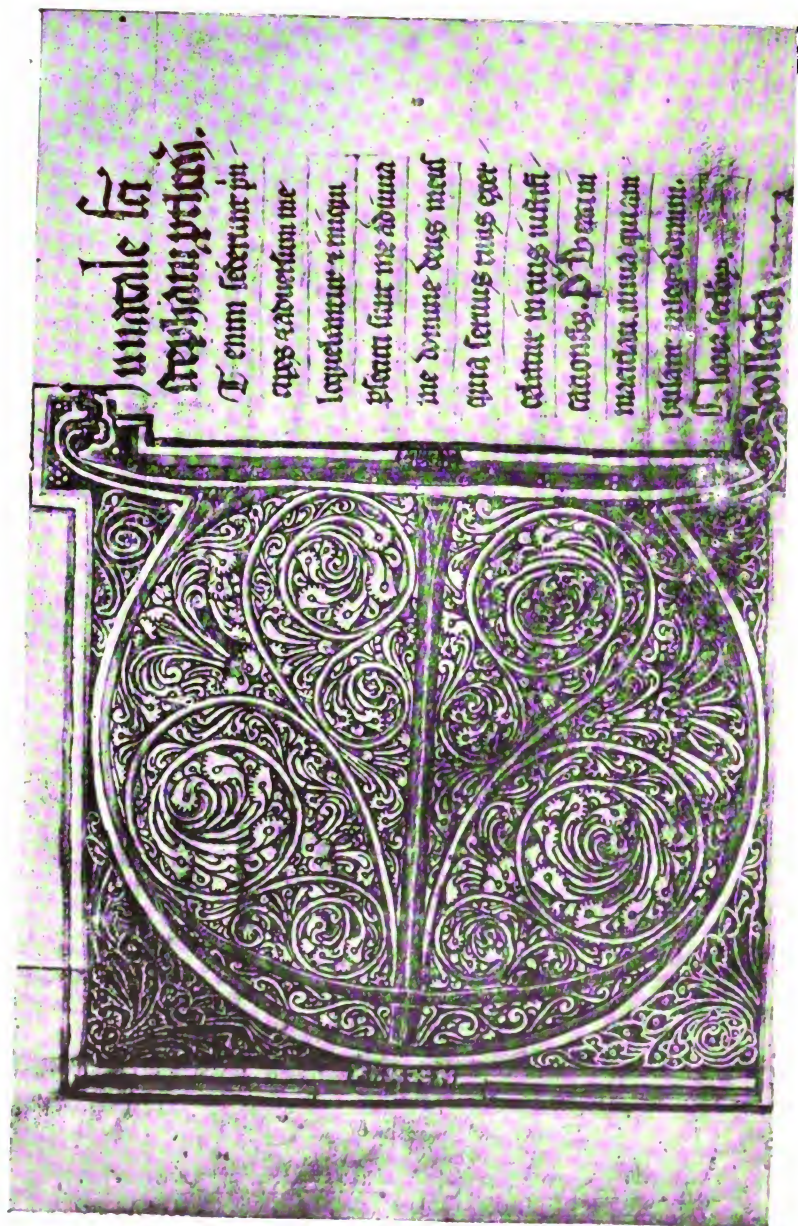 In natale sci
stephani prthom.
Et enim sederunt prin
cipes & adversum me
loquebantur & iniqui
psecuti sunt me adiuva
me domine deus meus
quia servus tuus exer
cebatur in tuis iustifi
cationibus P Beati in
maculati in via qui am
bulant in lege domini.